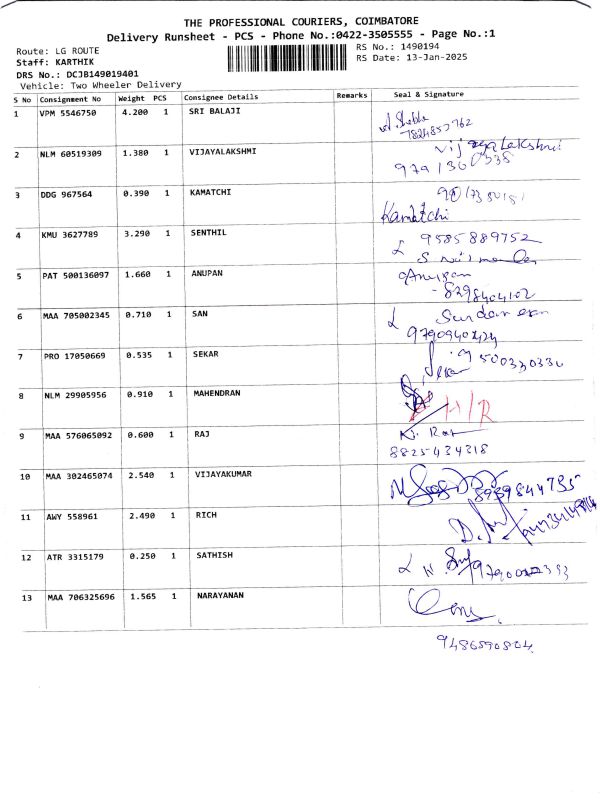 THE PROFESSIONAL COURIERS, COIMBATORE
Delivery Runsheet - PCS - Phone No.:0422-3505555 - Page No.:1
Route: LG ROUTE
RS No.: 1490194
Staff: KARTHIK
RS Date: 13-Jan-2025
DRS No.: DCJB149019401
Vehicle: Two Wheeler Delivery
S No Consignment No Weight PCS Consignee Details Remarks Seal & Signature
1 VPM 5546750 4.200 1 SRI BALAJI
2 NLM 60519309 1.380 1 VIJAYALAKSHMI Vijayalakshmi
3 DDG 967564 0.390 1 KAMATCHI
Kamatchi
4 KMU 3627789 3.290 1 SENTHIL 9585889752
5 PAT 500136097 1.660 1 ANUPAN
8298404102
6 MAA 705002345 0.710 1 SAN
7 PRO 17050669 0.535 1 SEKAR 9500330330
8 NLM 29905956 0.910 1 MAHENDRAN H/R
9 MAA 576065092 0.600 1 RAJ
8825434318
10 MAA 302465074 2.540 1 VIJAYAKUMAR
11 AWY 558961 2.490 1 RICH
12 ATR 3315179 0.250 1 SATHISH
13 MAA 706325696 1.565 1 NARAYANAN
9486590804